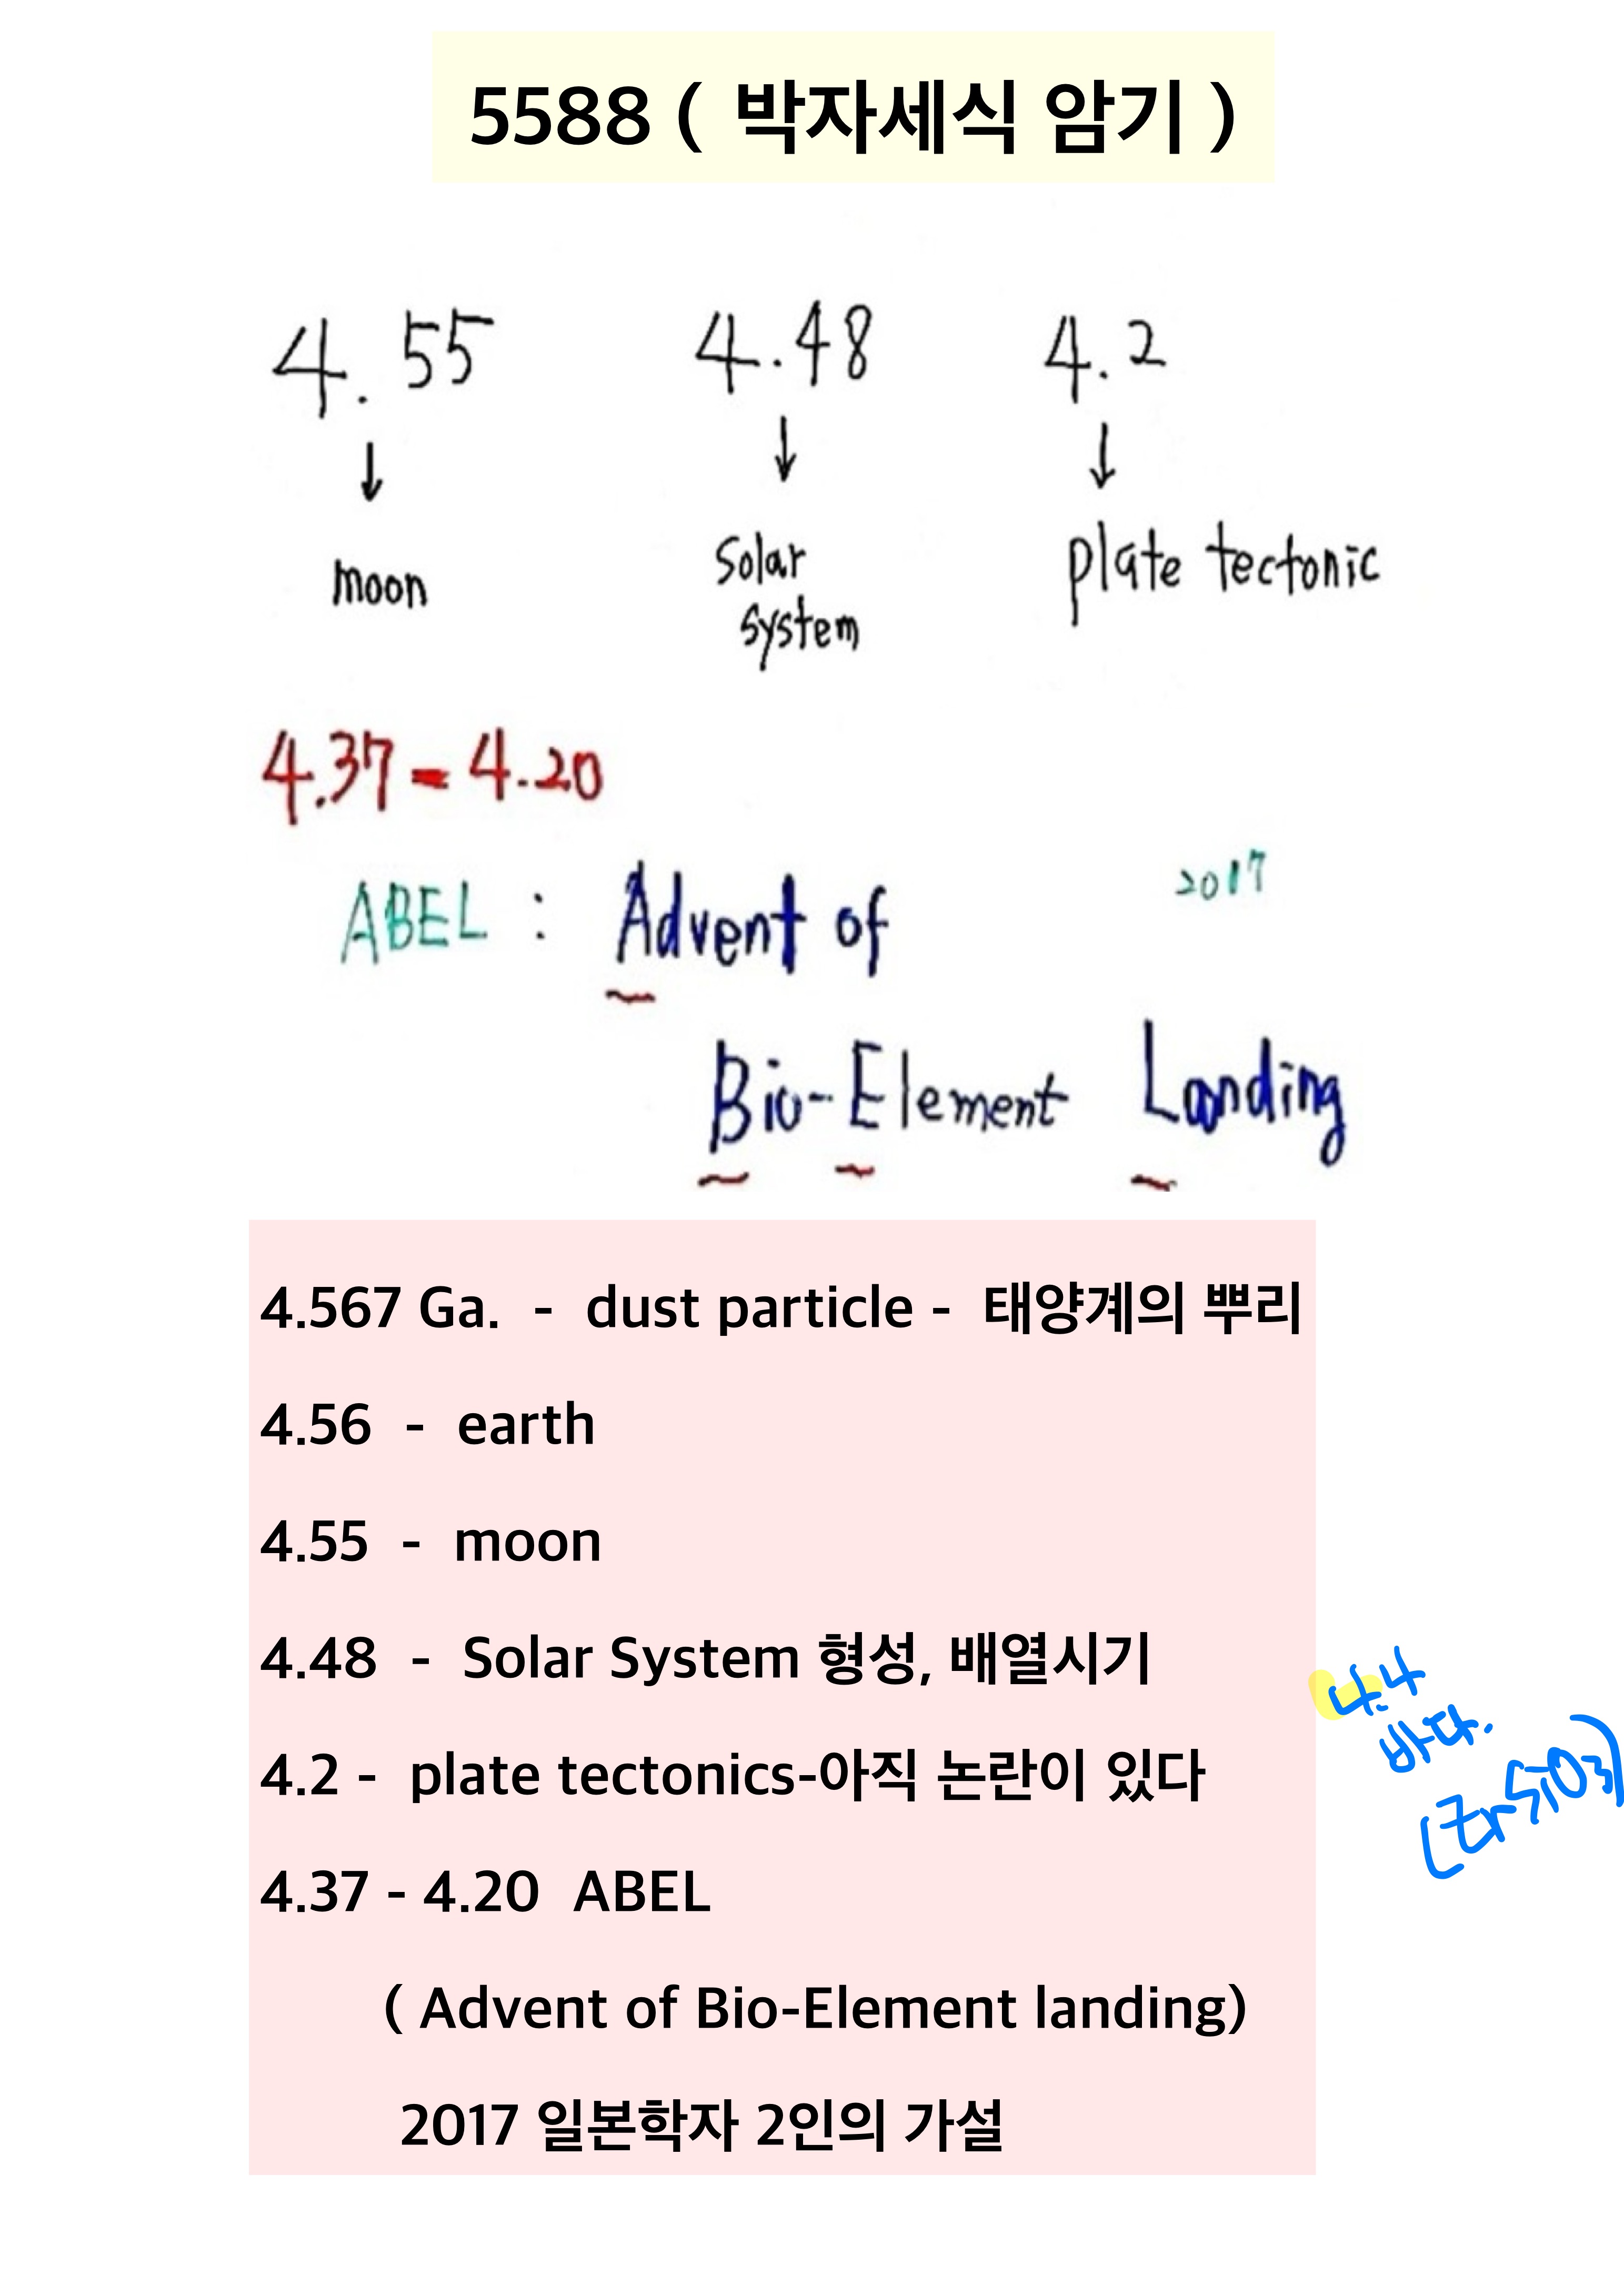 5588 ( 박자세식 암기 )
4.55 4.48 4.2
↓ ↓ ↓
moon solar system plate tectonic
4.37 - 4.20
2017
ABEL : Advent of
Bio-Element Landing
4.567 Ga. - dust particle - 태양계의 뿌리
4.56 - earth
4.55 - moon
4.48 - Solar System 형성, 배열시기
4.4
바다.
(ZrSiO3)
4.2 - plate tectonics-아직 논란이 있다
4.37 - 4.20 ABEL
( Advent of Bio-Element landing)
2017 일본학자 2인의 가설